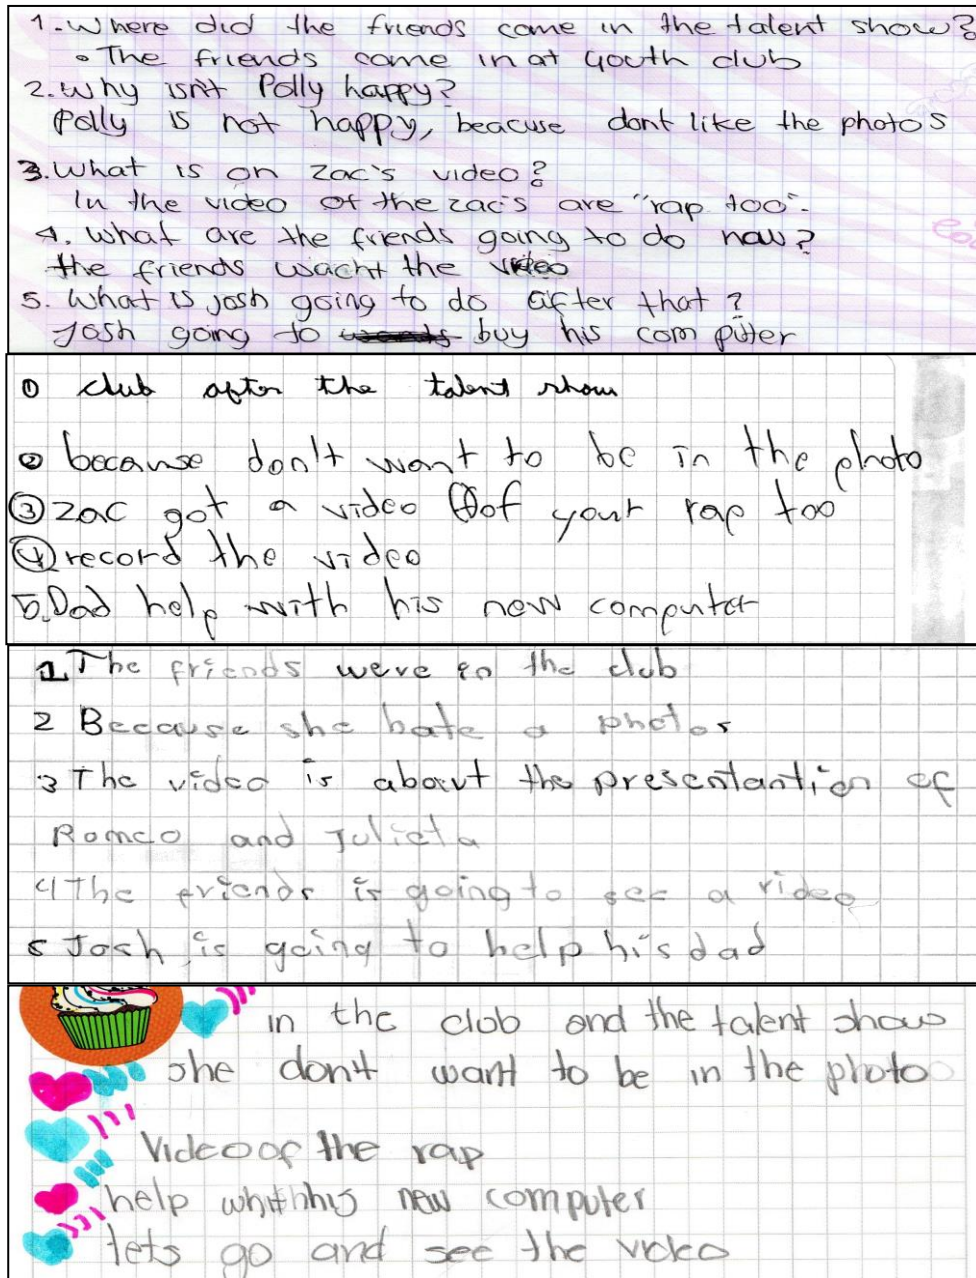 1. Where did the friends come in the talent show?
• The friends came in at youth club
2. Why isn't Polly happy?
Polly is not happy, beacuse dont like the photos
3. What is on Zac's video?
In the video of the zac's are "rap too".
4. What are the friends going to do now?
the friends wacht the video
5. What is josh going to do after that?
Josh going to buy his computer
① club after the talent show
② because don't want to be in the photo
③ zac got a video of your rap too
④ record the video
5. Dad help with his new computer
1 The friends were in the club
2 Because she hate a photos
3 The video is about the presentantion of
Romeo and Julieta
4 The friends is going to see a video
5 Josh is going to help his dad
in the club and the talent show
she don't want to be in the photo
Video of the rap
help his new computer
lets go and see the video